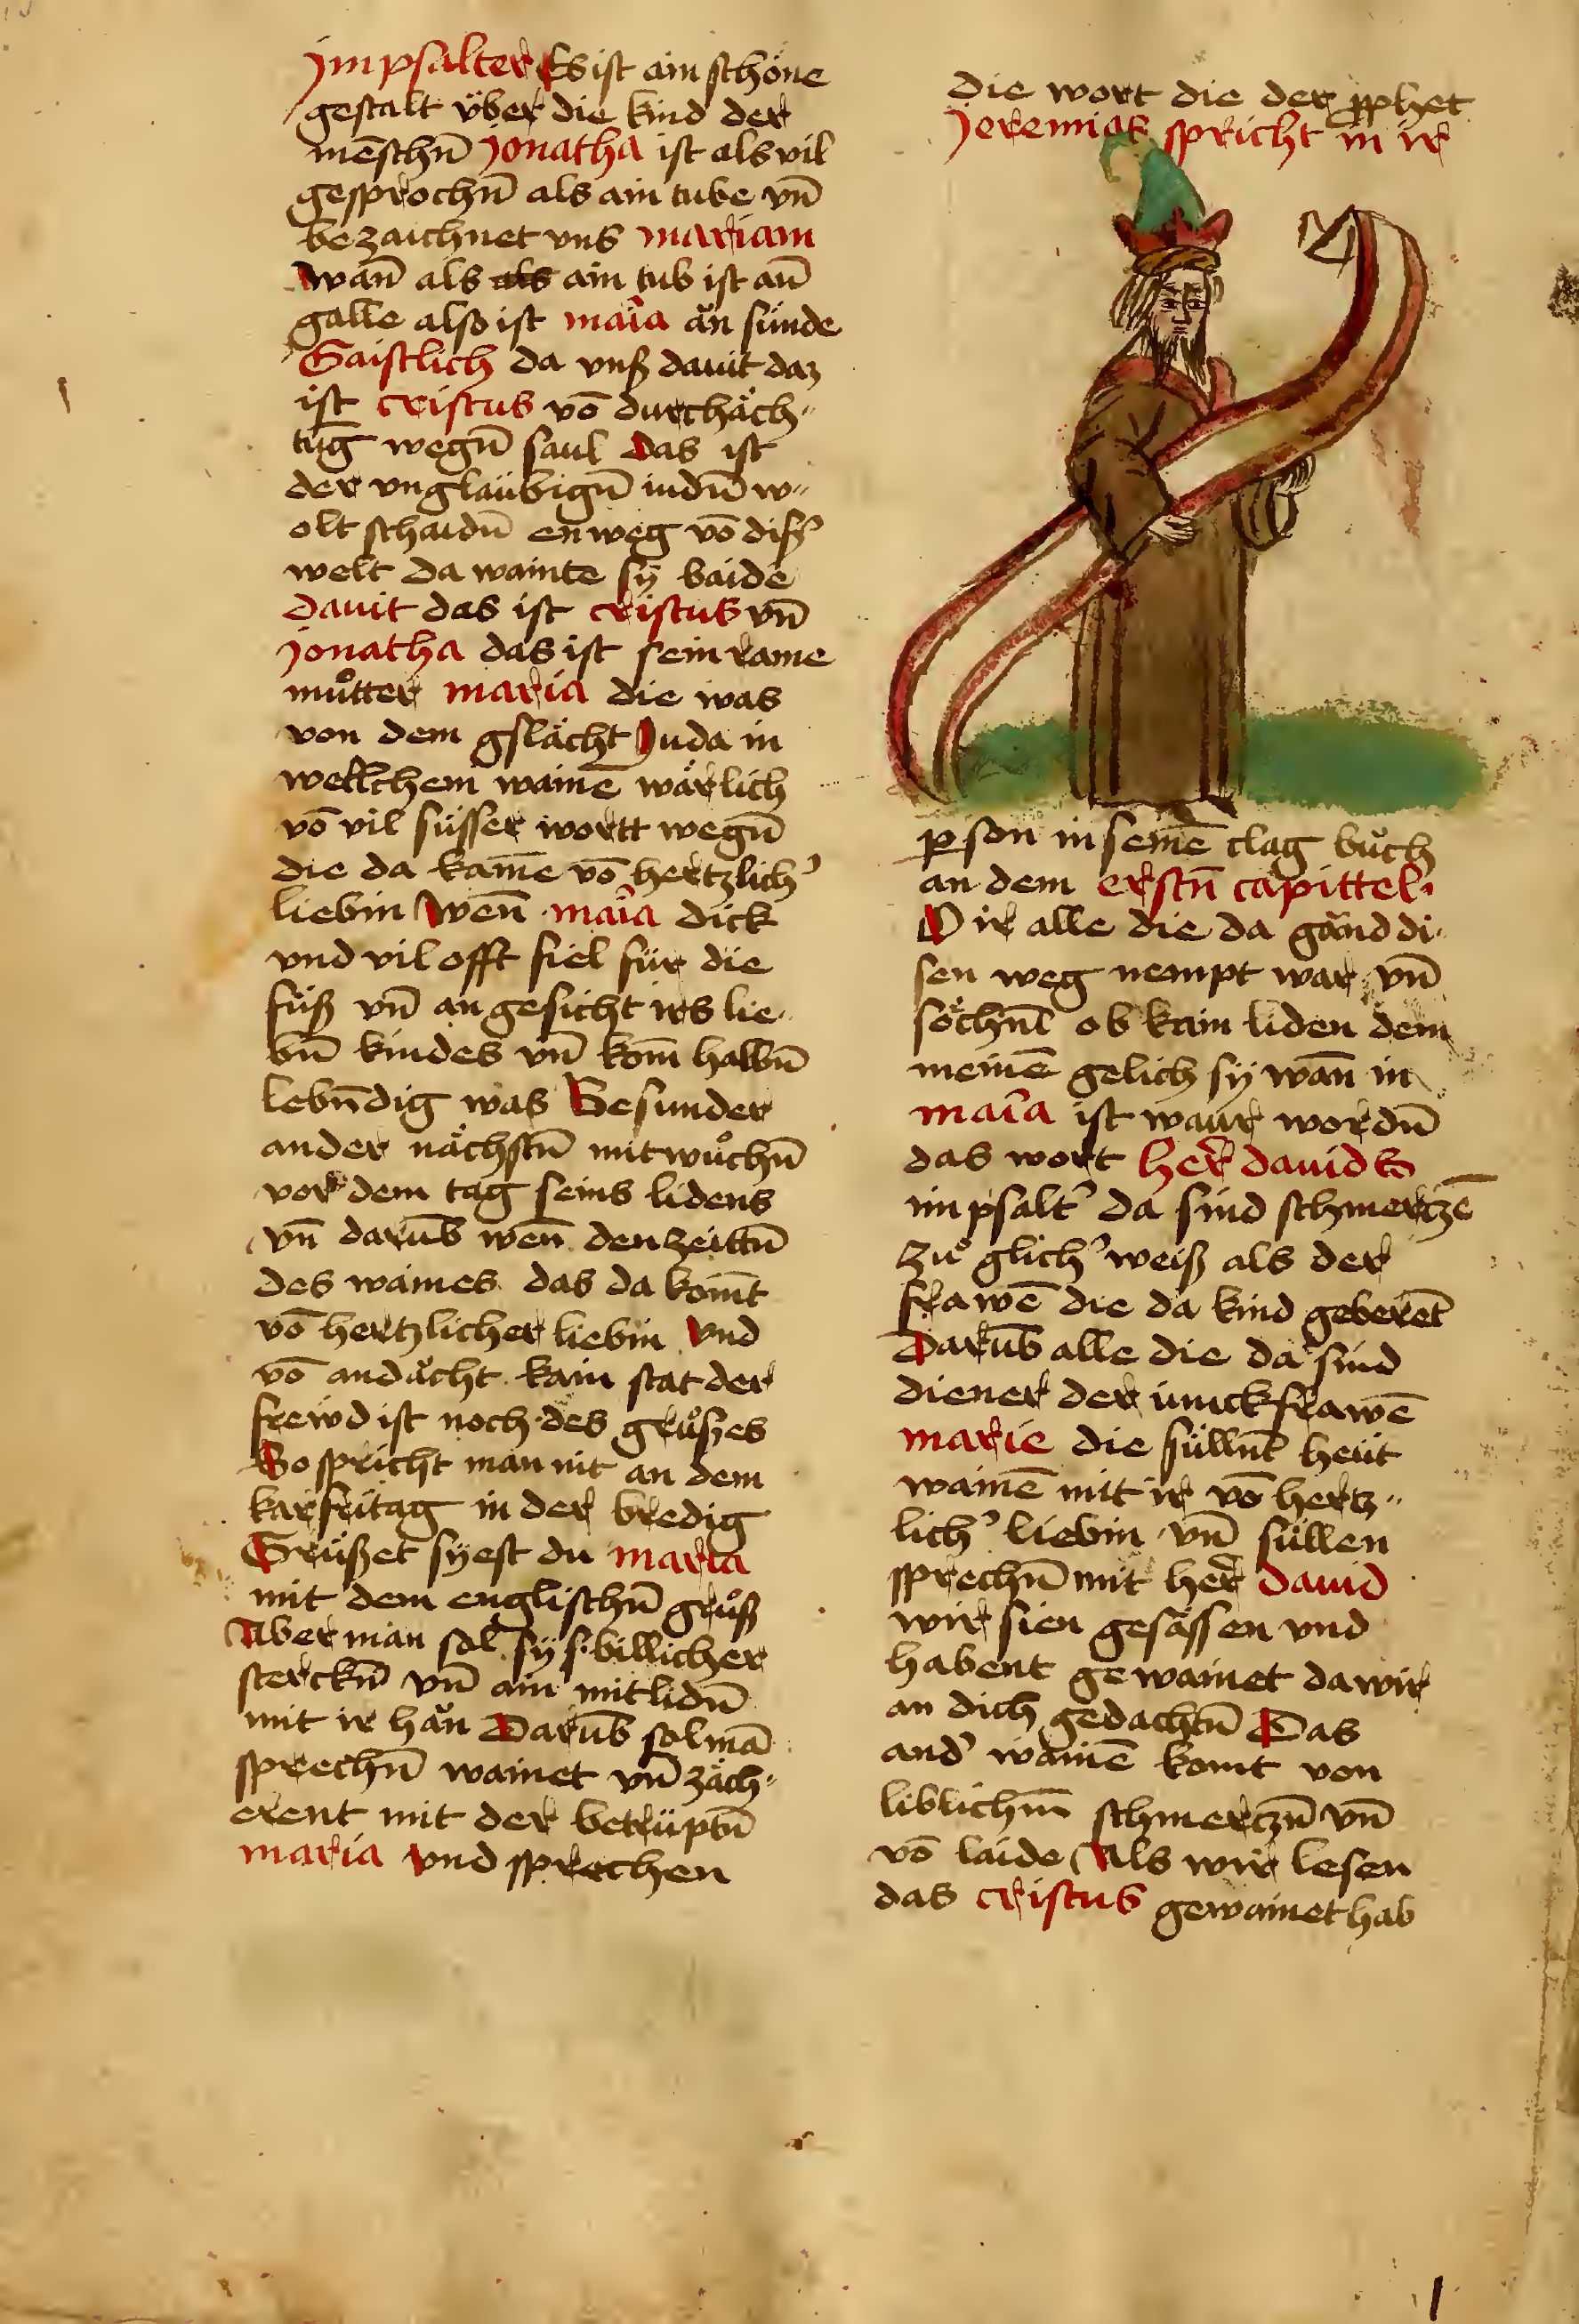 jm psalter Es ist ain schöne
gestalt über die kind der
mēschn̄ jonatha ist als vil
gesprochn̄ als ain tube vn̄
bezaichnet vns mariam
wan̄ als als ain tub ist an̄
galle also ist maīa ǎn sünde
Gaistlich da vnß dauit daz
ist cristus vō durchäch„
tūg wegn̄ saul das ist
der vngläubign̄ iudn̄ w„
olt schaidn̄ enweg vō diß᾽
welt da wainte sÿ baide
dauit das ist cristus vn̄
jonatha das ist sein rame
můtter maria die was
von dem gslächt Juda in
wellchem wainē wärlich
vō vil süsser wortt wegn̄
die da kamē vō hertzlich᾽
liebin Wen̄ maīa dick
vnd vil offt fiel für die
füß vn̄ angesicht irs lie„
bn̄ kindes vn̄ kom̄ halbn̄
lebn̄dig was Besunder
an der nächstn̄ mitwůchn̄
vor dem tag seins lidens
vn̄ darūb wen̄ den zeittn̄
des waines das da kom̄t
vō hertzlicher liebin vnd
vō andächt kain stat der
frewd ist noch des grůßes
So spricht man nit an dem
karfritag in der bredig
Grüßet sÿest du maria
mit dem englischn̄ grůß
Aber man sol sÿ f billicher
sterckn̄ vn̄ ain mitlidn̄
mit ir hǎn Darūb sol mā
sprechn̄ wainet vn̄ zäch„
erent mit der betrüptn̄
maria vnd sprechen
die wort die der ꝓphet
Jeremias spricht in ir
ꝑson in seinē clag bůch
an dem erstn̄ capittel
O ir alle die da gǎnd di„
sen weg nempt war vn̄
söchnt ob kain liden dem
meinē gelich sÿ wan̄ in
maīa ist waur wordn̄
das wort her̄ dauids
im psalt᾽ da sind schmertzē
zů glich᾽ weiß als der
frawē die da kind geberēt
Darūb alle die da sind
diener der iunckfrawē
marie die süllnt heüt
wainē mit ir vō hertz„
lich᾽ liebin vn̄ süllen
sprechn̄ mit her̄ dauid
wir sien gesässen vnd
habent gewainet da wir
an dich gedachtn̄ Das
and᾽ wainē komt von
liblichm̄ schmertzn̄ vn̄
vō laide Als wir lesen
das cristus gewainet hab